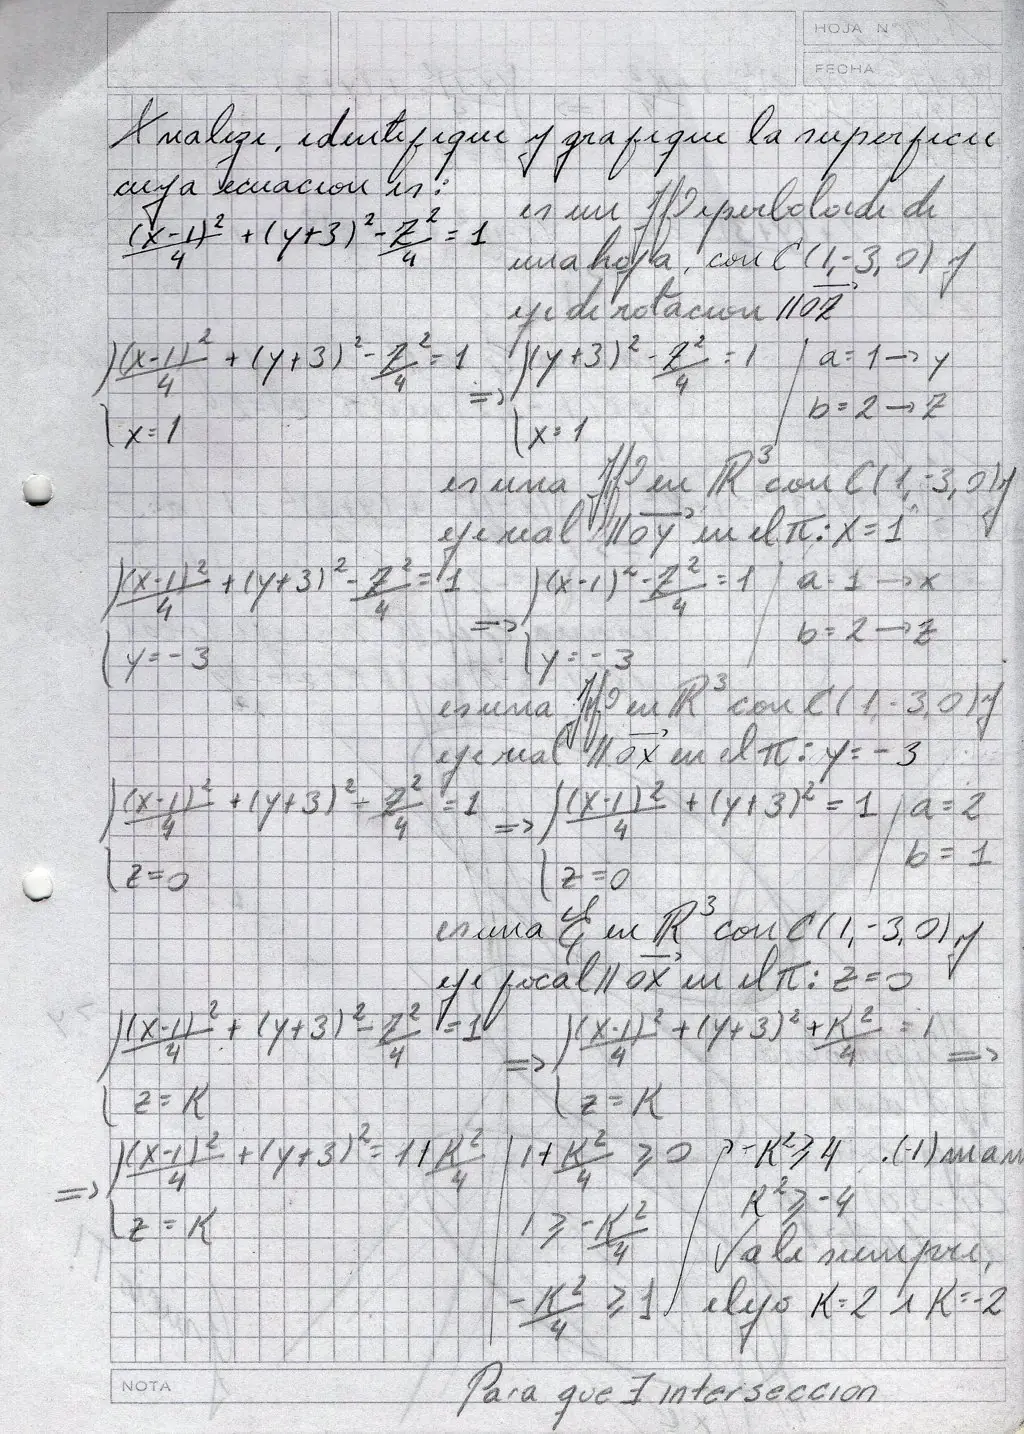 HOJA N°
FECHA
Analize, identifique y grafique la superficie
cuya ecuacion es:
(x-1)²/4 + (y+3)² - z²/4 = 1
es un Hiperboloide de
una hoja, con C(1,-3,0) y
eje de rotacion // OZ
{ (x-1)²/4 + (y+3)² - z²/4 = 1 => { (y+3)² - z²/4 = 1 / a = 1 → y
{ x = 1 { x = 1 b = 2 → z
es una H en ℝ³ con C(1,-3,0) y
eje real // OY en el π: x = 1
{ (x-1)²/4 + (y+3)² - z²/4 = 1 => { (x-1)² - z²/4 = 1 / a = 1 → x
{ y = -3 { y = -3 b = 2 → z
es una H en ℝ³ con C(1,-3,0) y
eje real // OX en el π: y = -3
{ (x-1)²/4 + (y+3)² - z²/4 = 1 => { (x-1)²/4 + (y+3)² = 1 / a = 2
{ z = 0 { z = 0 b = 1
es una en ℝ³ con C(1,-3,0) y
eje focal // OX en el π: z = 0
{ (x-1)²/4 + (y+3)² - z²/4 = 1 => { (x-1)²/4 + (y+3)² + K²/4 = 1 =>
{ z = K { z = K
=> { (x-1)²/4 + (y+3)² = 1 + K²/4 | 1 + K²/4 ≥ 0 / -K² ≥ 4 .(-1) mam
{ z = K 1 ≥ -K²/4 K² ≥ -4
Vale siempre,
-K²/4 ≥ 1 elijo K = 2 ∧ K = -2
NOTA
Para que ∃ interseccion